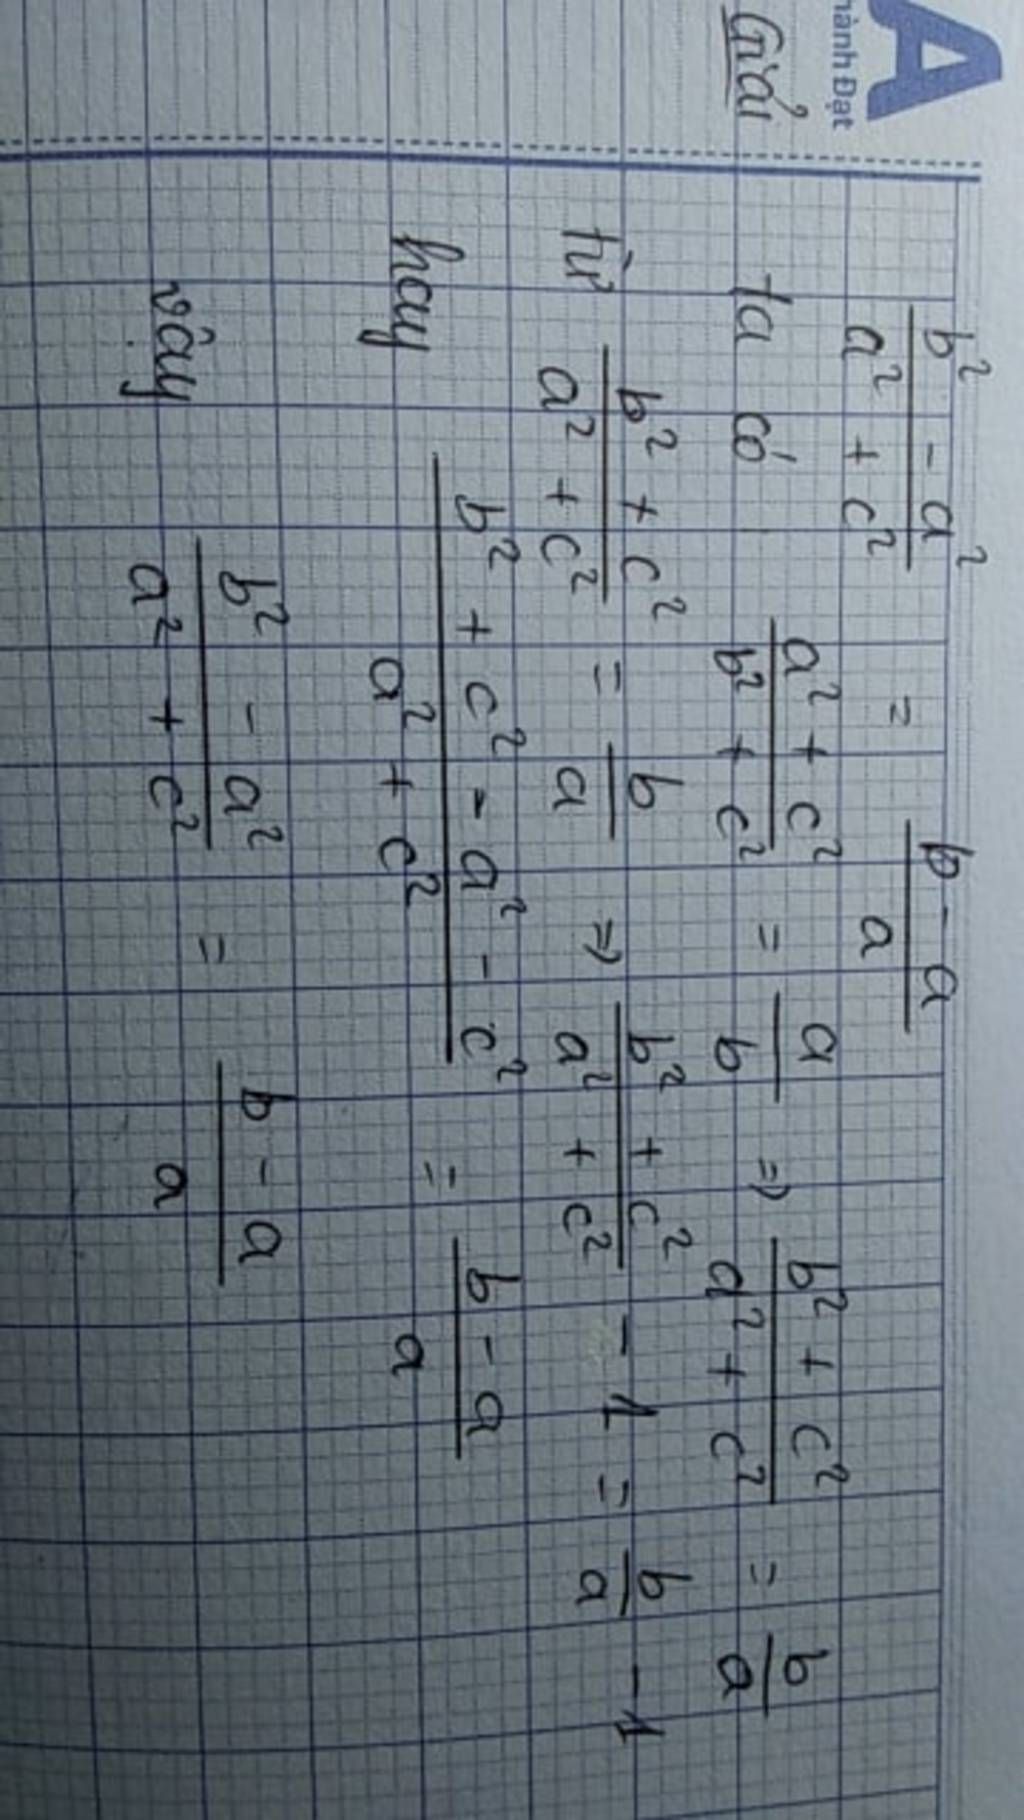 A
hành Đạt
b² - a² / a² + c² = b - a / a
Giải
ta có a² + c² / b² + c² = a / b ⇒ b² + c² / a² + c² = b / a
từ b² + c² / a² + c² = b / a ⇒ b² + c² / a² + c² - 1 = b / a - 1
hay b² + c² - a² - c² / a² + c² = b - a / a
vậy b² - a² / a² + c² = b - a / a